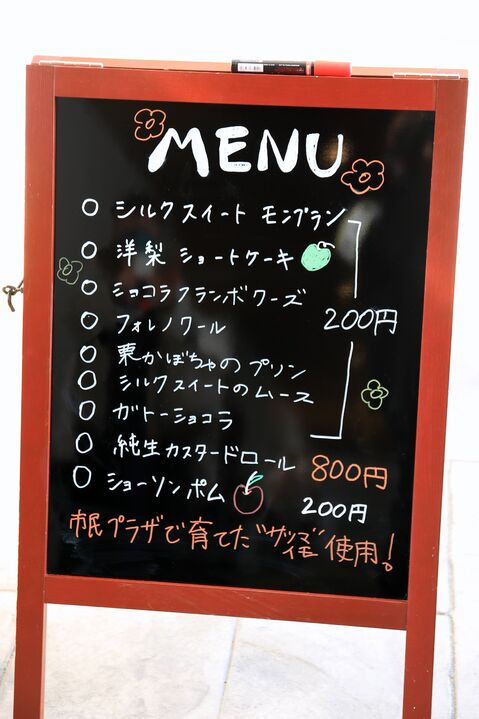 MENU
○ シルクスイート モンブラン
○ 洋梨 ショートケーキ
○ ショコラフランボワーズ
○ フォレノワール
200円
○ 栗かぼちゃの プリン
○ シルクスイートのムース
○ ガトーショコラ
○ 純生カスタードロール 800円
○ ショーソンポム 200円
市民プラザで育てた"サツマイモ"使用!